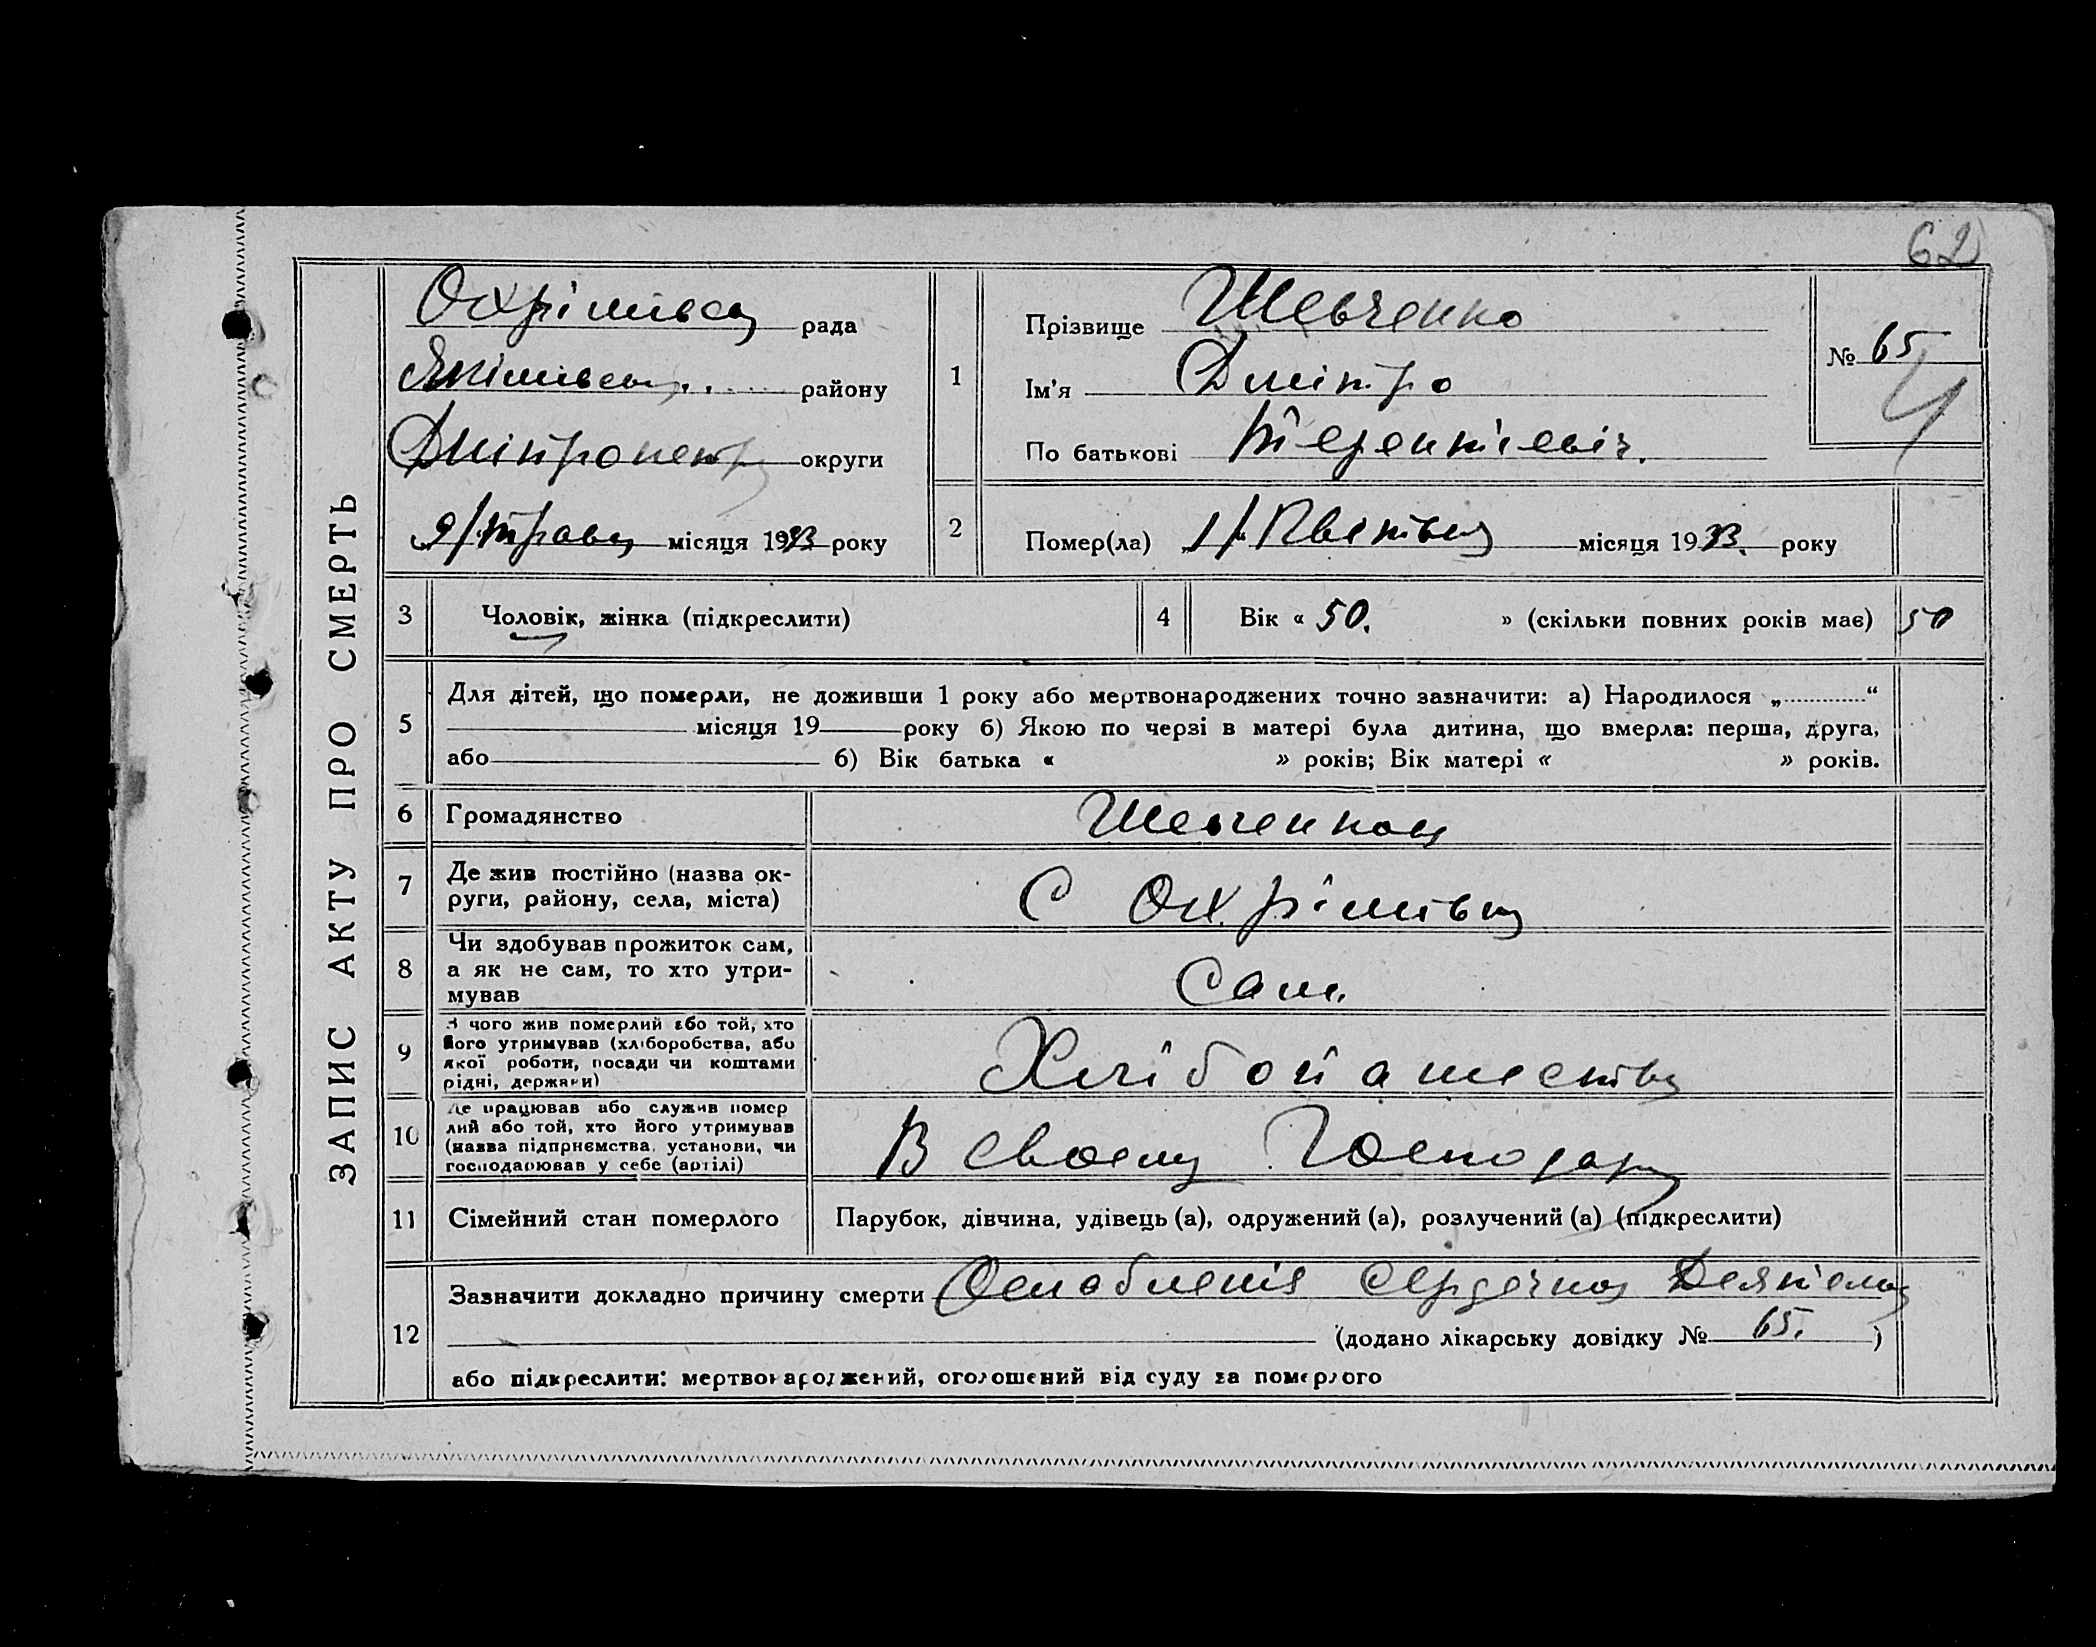 62
ЗАПИС АКТУ ПРО СМЕРТЬ
Охрімівськ рада
Якімівськ району
Дніпропетр округи
9/травн місяця 1933 року
1
Прізвище Шевченко
Ім'я Дмітро
По батькові Терентієвіч.
№ 65
2
Помер(ла) „1/" Квітня місяця 1933. року
3 Чоловік, жінка (підкреслити)
4 Вік « 50. » (скільки повних років має) 50
5
Для дітей, що померли, не доживши 1 року або мертвонароджених точно зазначити: а) Народилося „ “
місяця 19 року б) Якою по черзі в матері була дитина, що вмерла: перша, друга,
або б) Вік батька « » років; Вік матері « » років.
6 Громадянство
7 Де жив постійно (назва ок-
руги, району, села, міста)
С Охрімівка
8 Чи здобував прожиток сам,
а як не сам, то хто утри-
мував
Сам.
9 З чого жив померлий або той, хто
його утримував (хліборобства, або
якої роботи, посади чи коштами
рідні, держави)
10 Де працював або служив помер
лий або той, хто його утримував
(назва підприємства, установи, чи
господарював у себе (артілі)
В своему Господар
11 Сімейний стан померлого Парубок, дівчина, удівець (а), одружений (а), розлучений (а) (підкреслити)
12
Зазначити докладно причину смерти Ослобленія Сердечной Деятель
(додано лікарську довідку № 65. )
або підкреслити: мертвонароджений, оголошений від суду за померлого